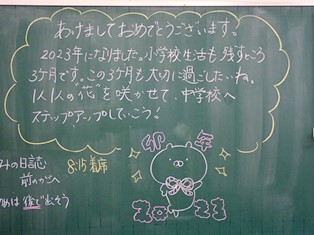 あけましておめでとうございます。
2023年になりました。小学校生活も残すところ
3ヶ月です。この3ヶ月も大切に過ごしたいね。
1人1人の"花"を咲かせて、中学校へ
ステップアップしていこう!
卯年
みの日誌
8:15着席
前のかごへ
めは後で出そう
2023